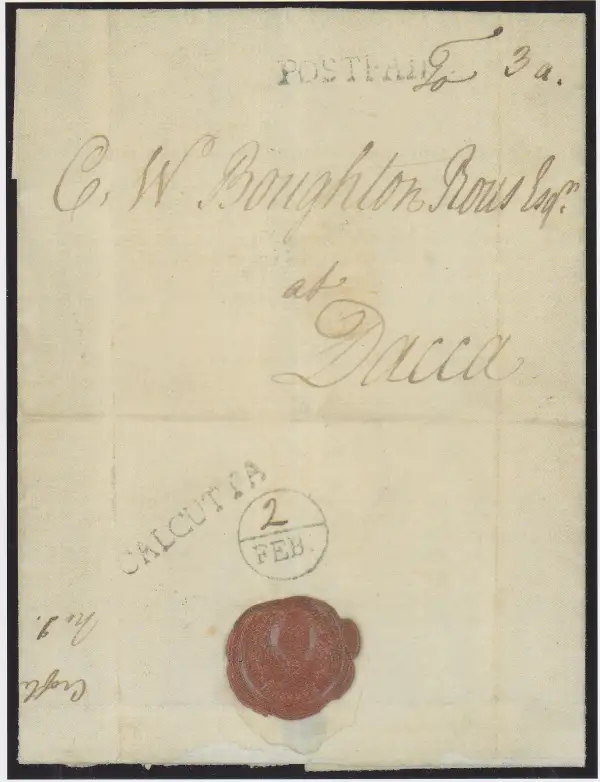 POSTPAID To 3 a.
C. W. Boughton Rous Esqr.
at
Dacca
CALCUTTA
2
FEB.
No 1.
Crofte